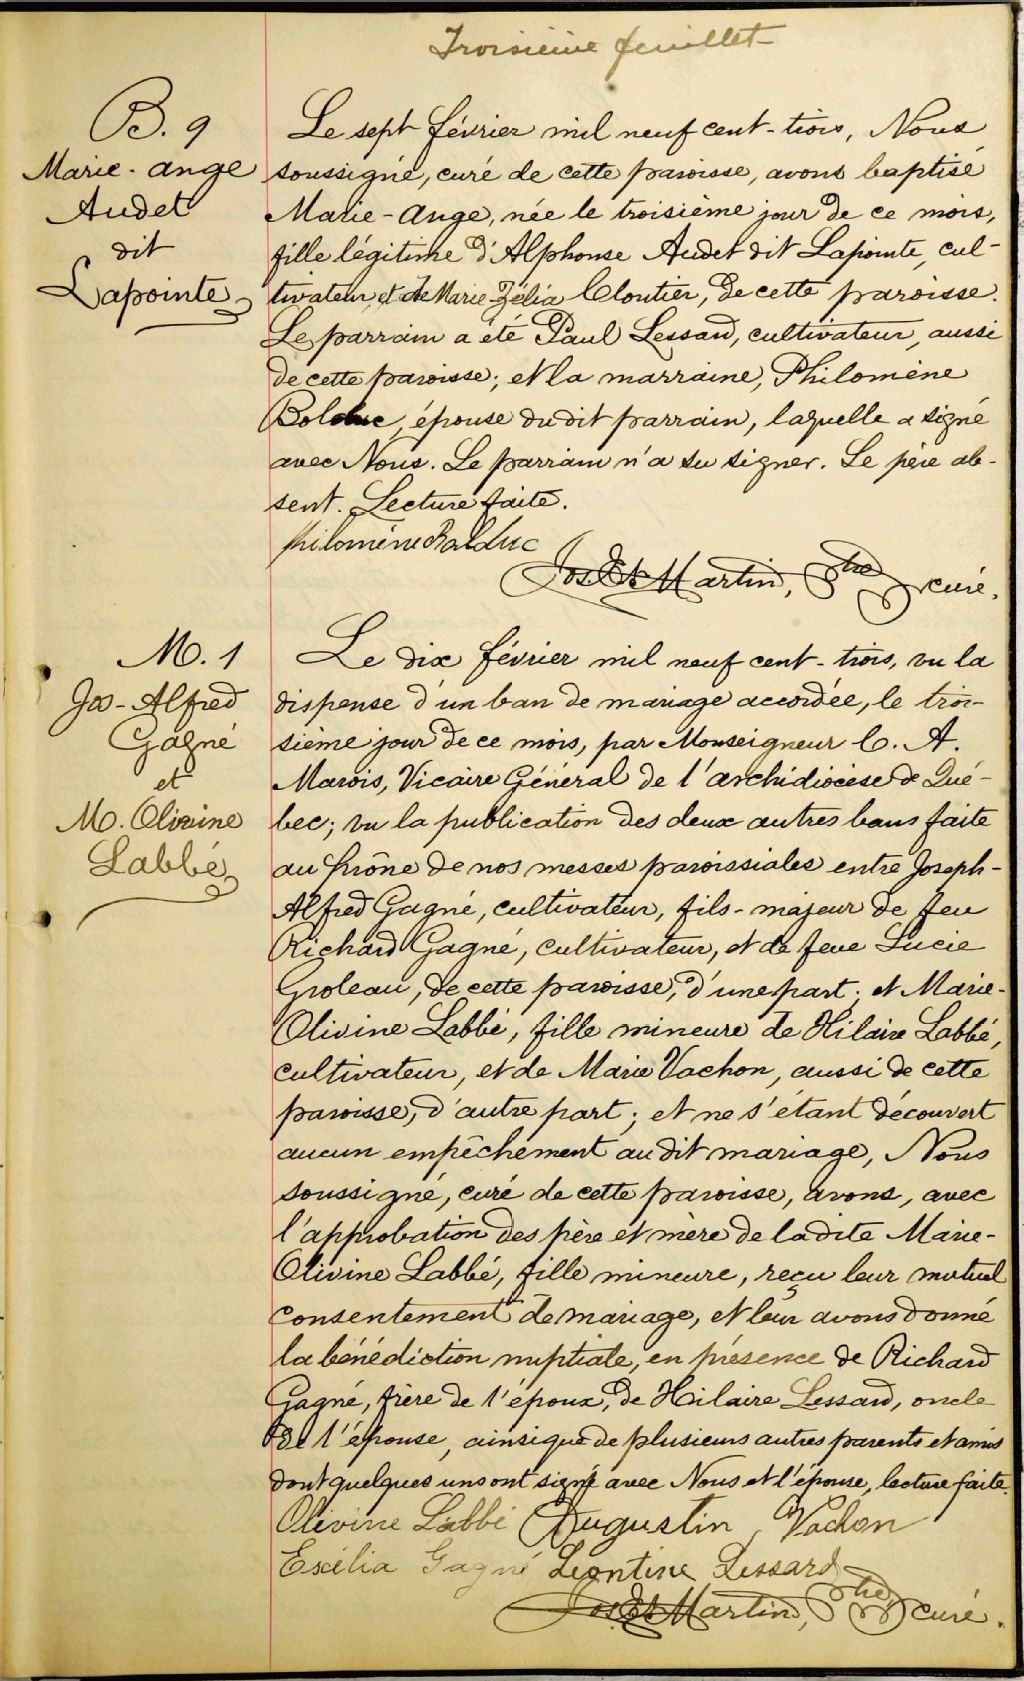 Troisième feuillet
B. 9
Marie-ange
Audet
dit
Lapointe
Le sept février mil neuf cent-trois, Nous
soussigné, curé de cette paroisse, avons baptisé
Marie-Ange, née le troisième jour de ce mois,
fille légitime d'Alphonse Audet dit Lapointe, cul-
tivateur, et de Marie-Zélia Cloutier, de cette paroisse.
Le parrain a été Paul Lessard, cultivateur, aussi
de cette paroisse; et la marraine, Philomène
Bolduc, épouse du dit parrain, laquelle a signé
avec Nous. Le parrain n'a su signer. Le père ab-
sent. Lecture faite.
Philomène Bolduc
Jos Et Martin, Ptre curé.
M. 1
Jos-Alfred
Gagné
et
M. Olivine
Labbé
Le dix février mil neuf cent-trois, vu la
dispense d'un ban de mariage accordée, le troi-
sième jour de ce mois, par Monseigneur C. A.
Marois, Vicaire Général de l'archidiocèse de Qué-
bec; vu la publication des deux autres bans faite
au prône de nos messes paroissiales entre Joseph-
Alfred Gagné, cultivateur, fils-majeur de feu
Richard Gagné, cultivateur, et de feue Lucie
Groleau, de cette paroisse, d'une part; et Marie-
Olivine Labbé, fille mineure de Hilaire Labbé,
cultivateur, et de Marie Vachon, aussi de cette
paroisse, d'autre part; et ne s'étant découvert
aucun empêchement au dit mariage, Nous
soussigné, curé de cette paroisse, avons, avec
l'approbation des père et mère de la dite Marie-
Olivine Labbé, fille mineure, reçu leur mutuel
consentement de mariage, et leur avons donné
la bénédiction nuptiale, en présence de Richard
Gagné, frère de l'époux, de Hilaire Lessard, oncle
de l'épouse, ainsi que de plusieurs autres parents et amis
dont quelques uns ont signé avec Nous et l'épouse, lecture faite.
Olivine Labbé Augustin Vachon
Exélia Gagné Léontine Lessard
Jos Et Martin, Ptre curé.